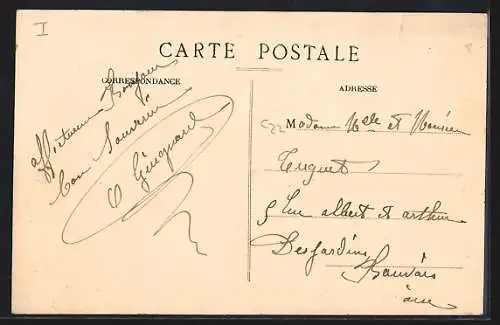 I
CARTE POSTALE
CORRESPONDANCE
ADRESSE
affectueux Bonjour
bon Souvenir
Madame Mlle et Monsieur
Huguet
5 Rue albert et arthur
Desjardins
Beauvais
oise